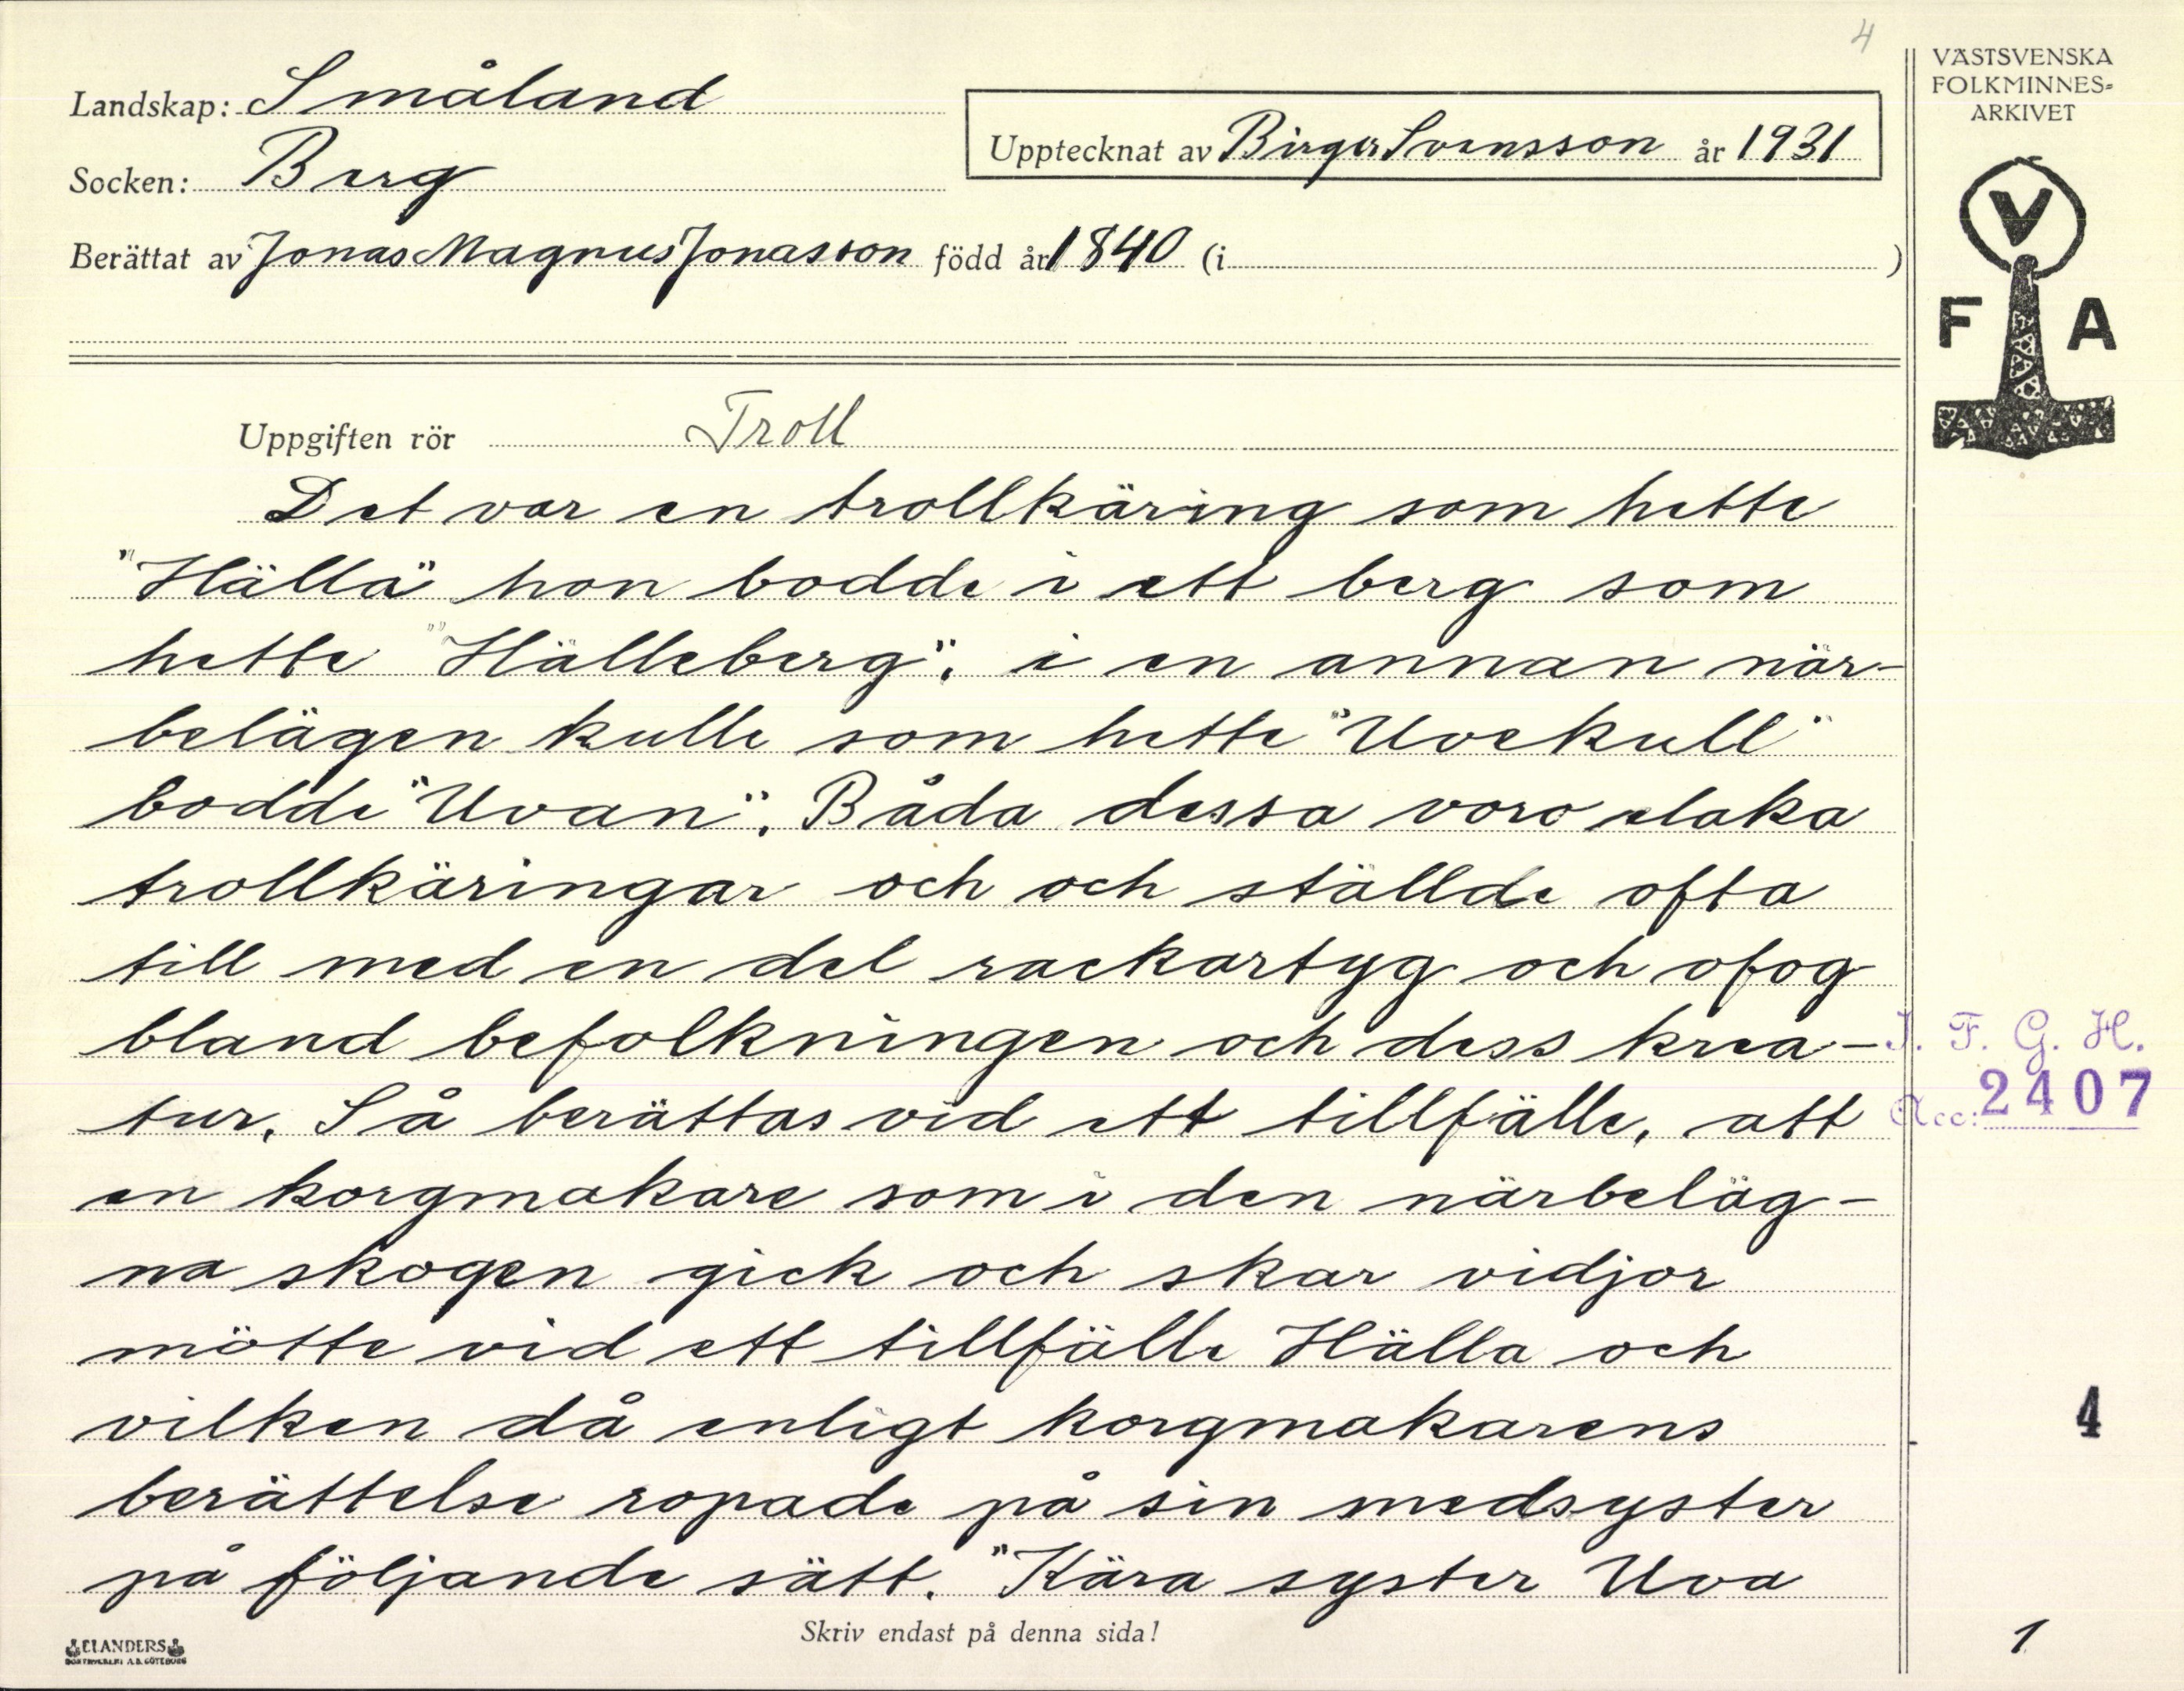 4
VÄSTSVENSKA
FOLKMINNES-
ARKIVET
Landskap: Småland
Upptecknat av Birger Svensson år 1931
Socken: Berg
Berättat av Jonas Magnus Jonasson född år 1840 (i )
V
F A
Uppgiften rör Troll
Det var en trollkäring som hette
"Hälla" hon bodde i ett berg som
hette "Hälleberg", i en annan när-
belägen kulle som hette "Uvekull"
bodde "Uvan". Båda dessa voro elaka
trollkäringar och och ställde ofta
till med en del rackartyg och ofog
bland befolkningen och dess krea-
tur. Så berättas vid ett tillfälle, att
en korgmakare som i den närbeläg-
na skogen gick och skar vidjor
mötte vid ett tillfälle Hälla och
vilken då enligt korgmakarens
berättelse ropade på sin medsyster
på följande sätt. "Kära syster Uva
I. F. G. H.
Acc: 2407
4
1
Skriv endast på denna sida!
ELANDERS
BOKTRYCKERI A.B. GÖTEBORG